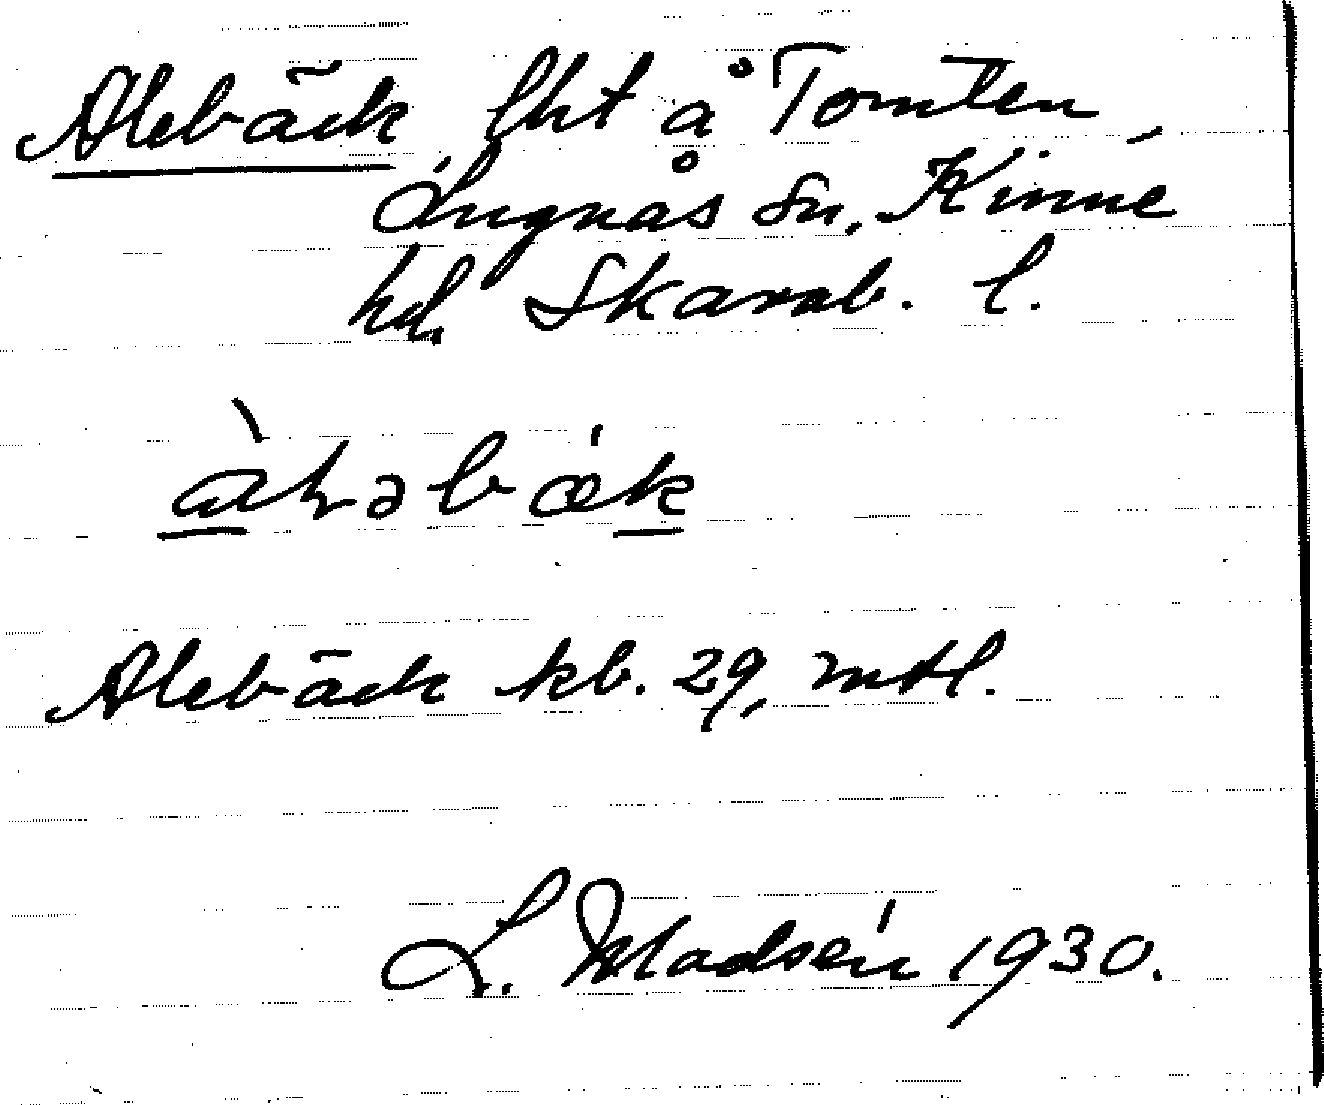 Alebäck lht å Tomten,
Lugnås sn, Kinne
hd, Skarab. l.
Alebäck kb. 29, mtl.
L. Madsén 1930.